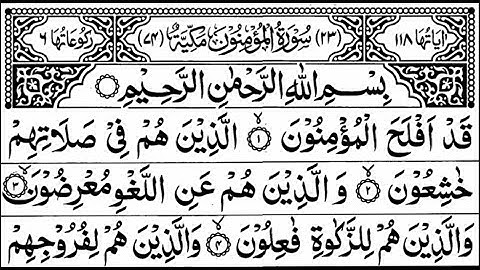 اٰيَاتُهَا ١١٨ (٢٣) سُوْرَةُ الْمُؤْمِنُوْنَ مَكِّيَّةٌ (٧٤) رُكُوْعَاتُهَا ٦
بِسْمِ اللّٰهِ الرَّحْمٰنِ الرَّحِيْمِ
قَدْ اَفْلَحَ الْمُؤْمِنُوْنَ ۙ﴿١﴾ الَّذِيْنَ هُمْ فِيْ صَلَاتِهِمْ
خٰشِعُوْنَ ۙ﴿٢﴾ وَالَّذِيْنَ هُمْ عَنِ اللَّغْوِ مُعْرِضُوْنَ ۙ﴿٣﴾
وَالَّذِيْنَ هُمْ لِلزَّكٰوةِ فٰعِلُوْنَ ۙ﴿٤﴾ وَالَّذِيْنَ هُمْ لِفُرُوْجِهِمْ